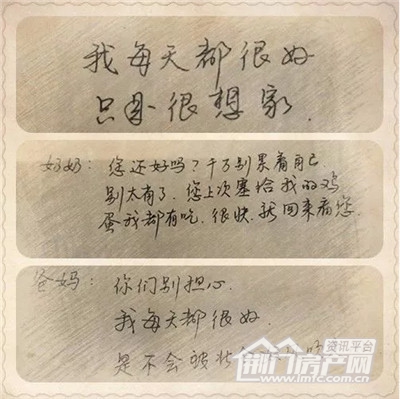 我每天都很好
只是很想家.
奶奶：您还好吗？千万别累着自己
别太省了.您上次塞给我的鸡
蛋我都有吃.很快就回来看您.
爸妈：你们别担心.
我每天都很好.
是不会被
荆门房产网 资讯平台
www.lmfc.com.cn